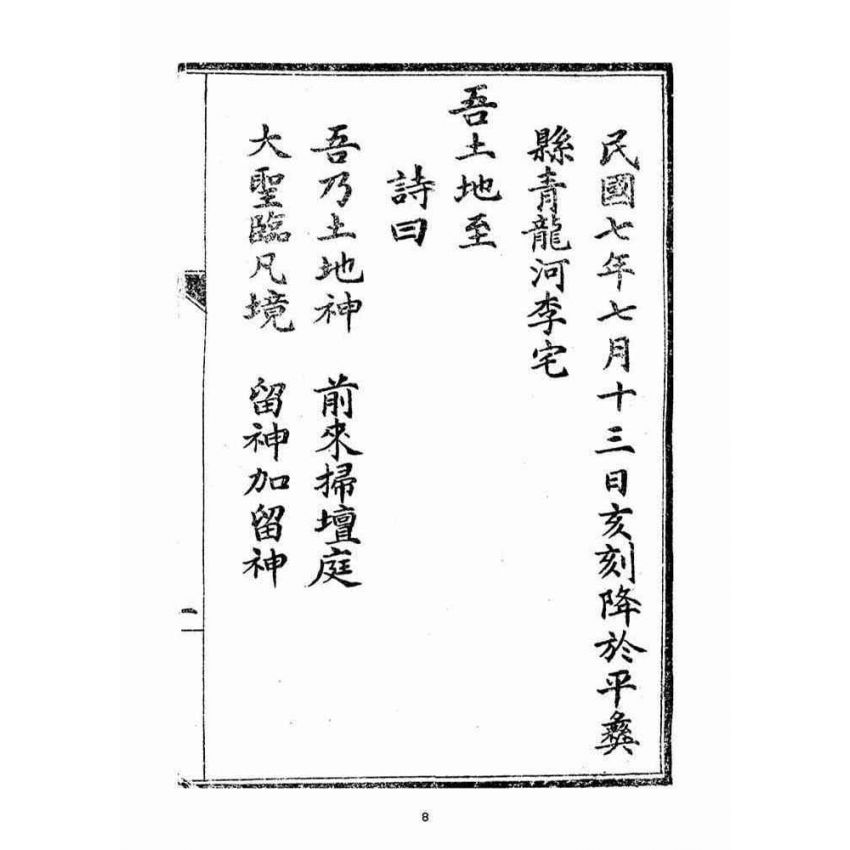 民國七年七月十三日亥刻降於平彝
縣青龍河李宅
吾土地至
詩曰
吾乃土地神　前來掃壇庭
大聖臨凡境　留神加留神
一
8